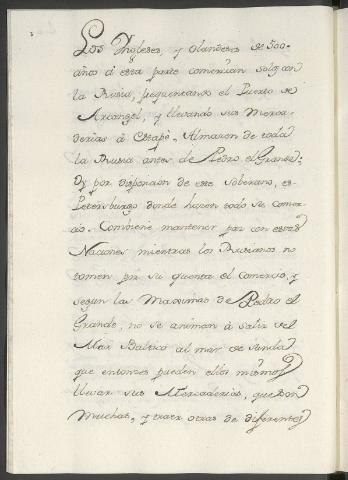 Los Yngleses, y Olandeses de 500.
años á esta parte comercian solo con
la Rusia, frequentando el Puerto de
Arcangel, y llevando sus Merca-
derias á Estapè, Almacen de toda
la Rusia antes de Pedro el Grande;
Oy por disposicion de este Soberano, es
Petersburgo donde hacen todo su comer-
cio. Combiene mantener paz con estas
Naciones mientras los Rusianos no
tomen por su quenta el Comercio, y
segun las Maximas de Pedro el
Grande, no se animan á salir del
Mar Baltico al mar de Sunda
que entonzes pueden ellos mismos
llevar sus Mercaderias, que son
muchas, y traer otras de diferentes